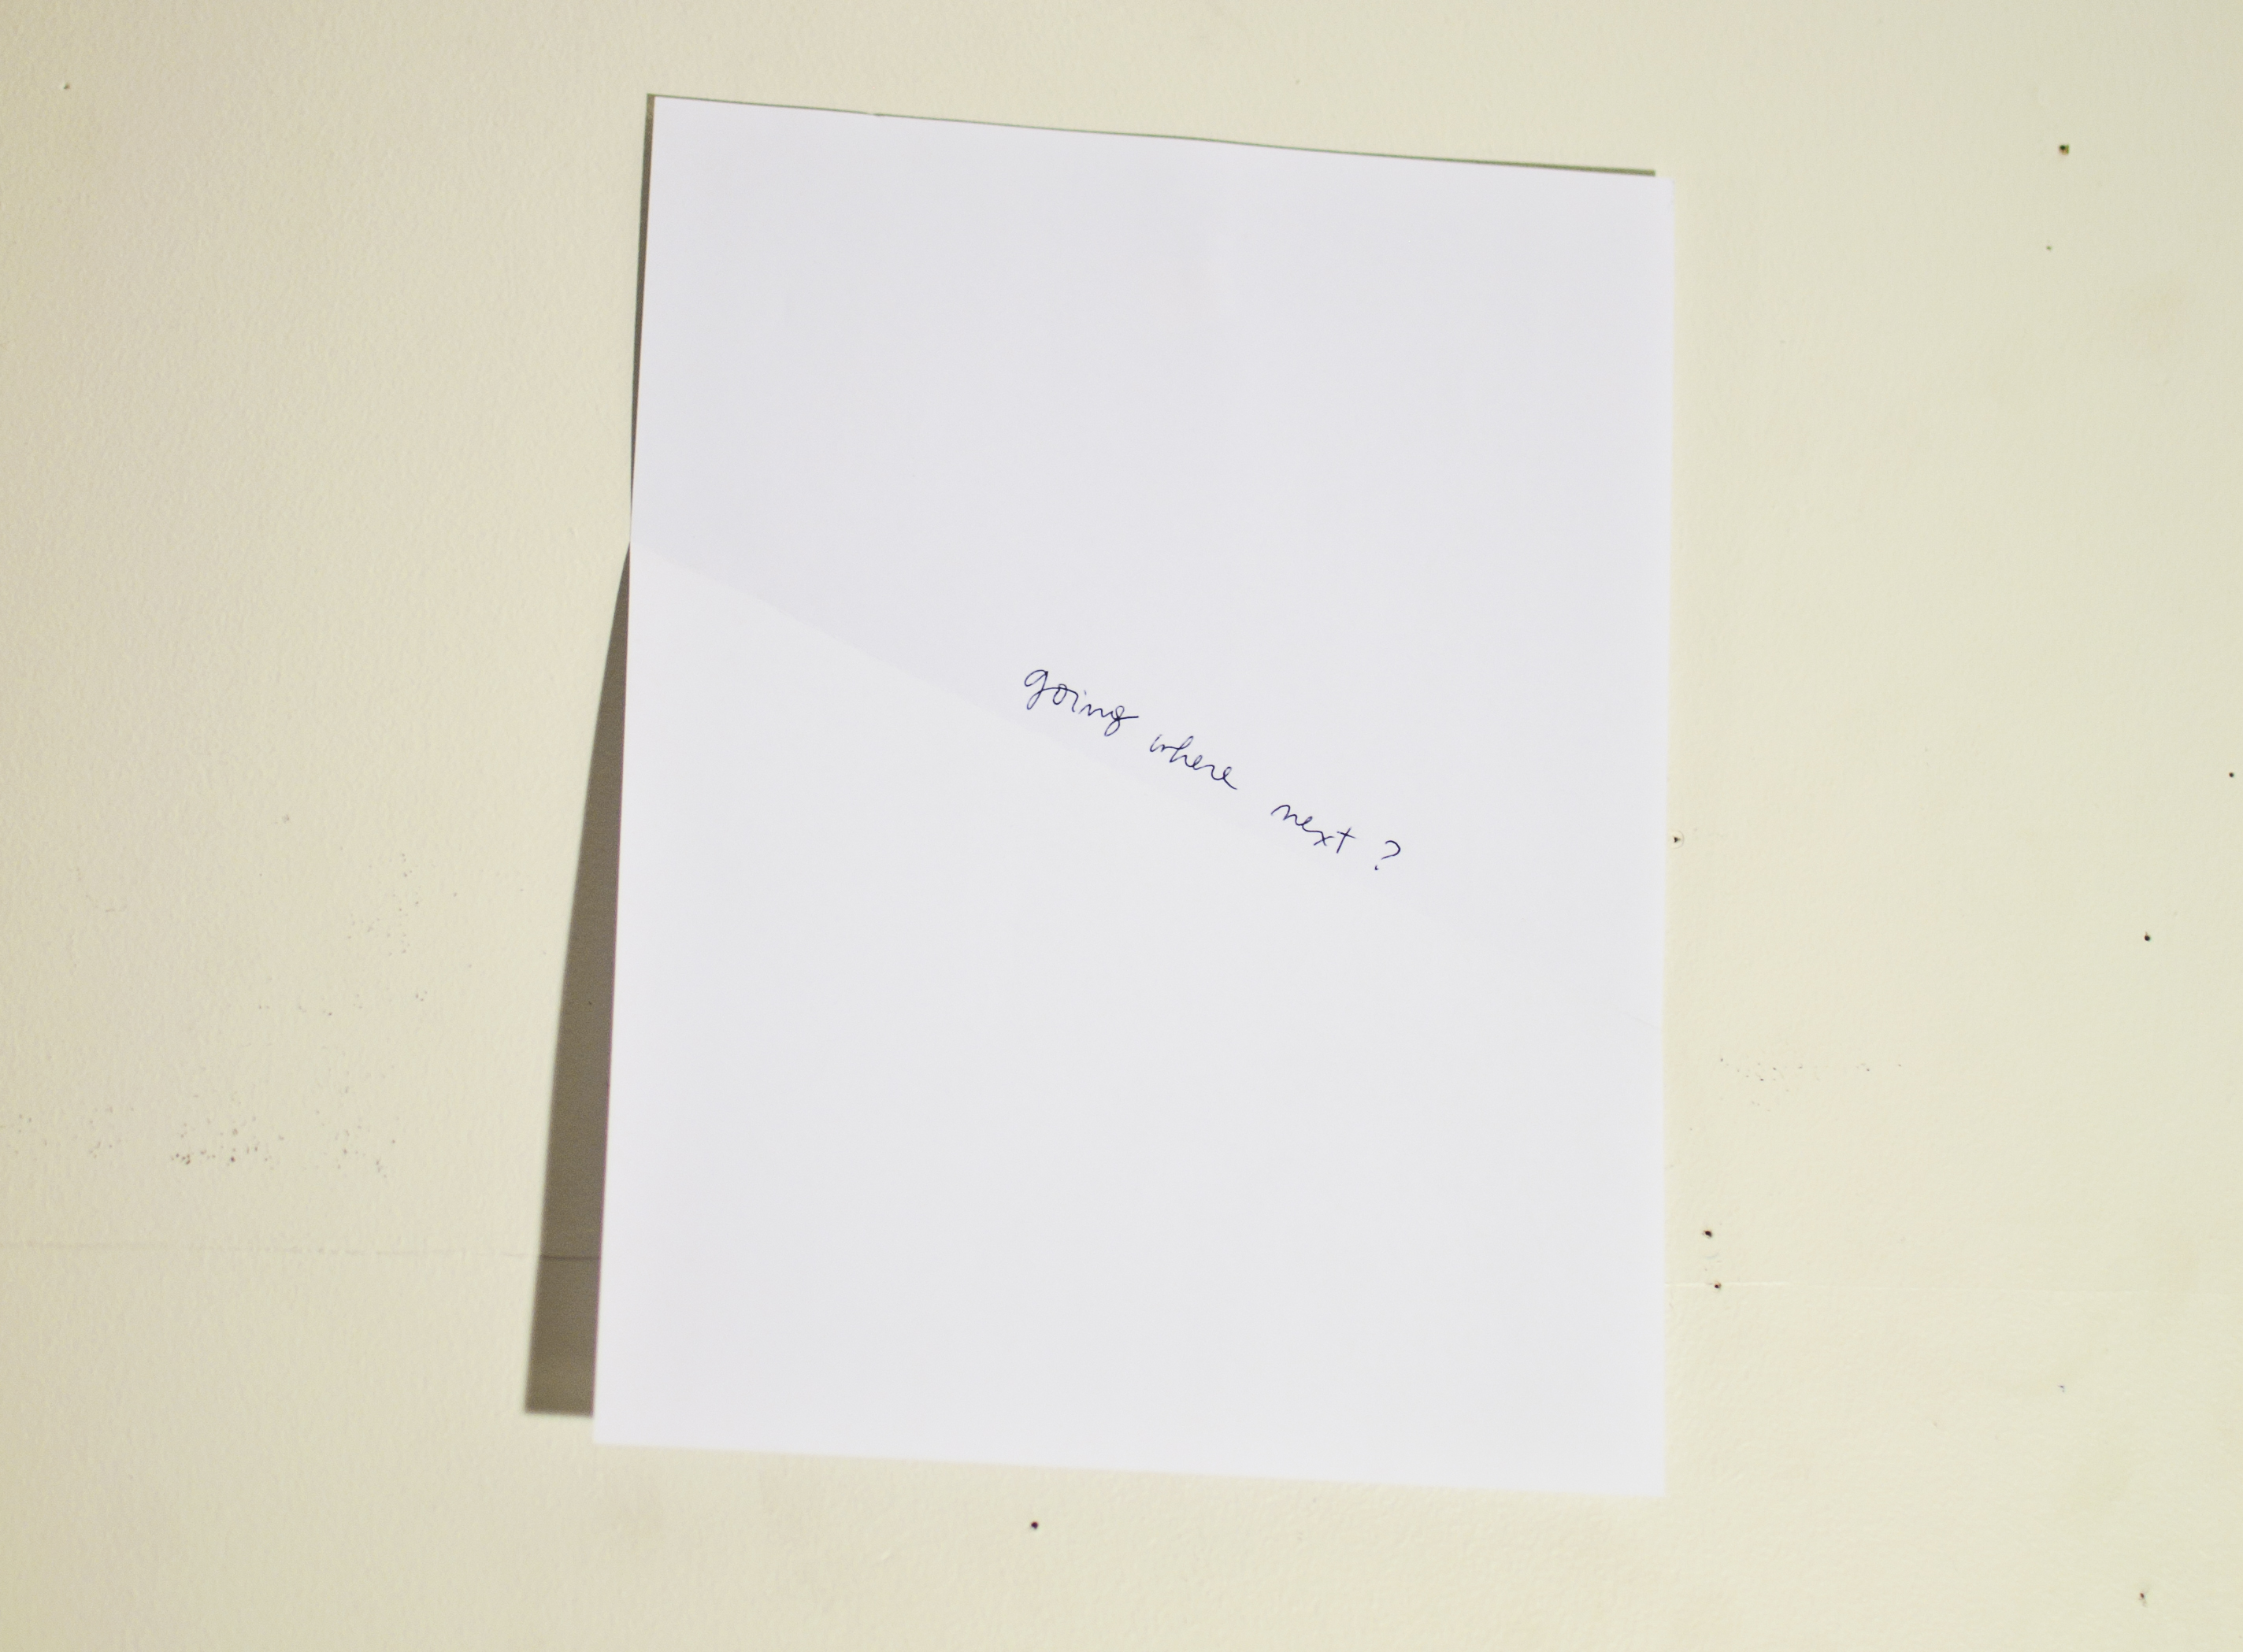 going where next ?